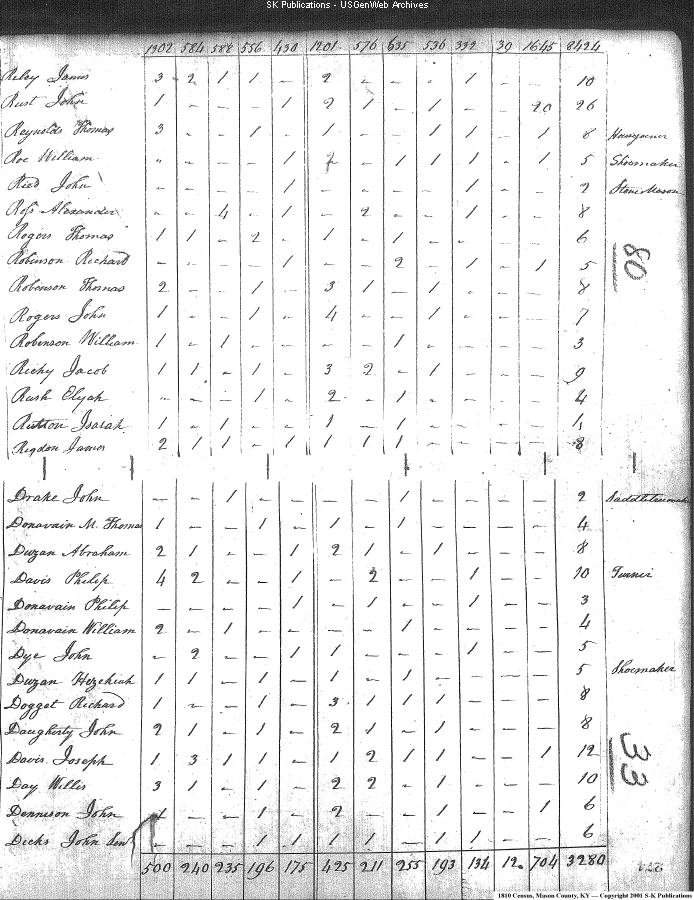 SK Publications - USGenWeb Archives
1302 584 588 556 430 1201 576 635 536 332 39 1645 8424
Riley James 3 2 1 1 – 2 – – – 1 – – 10
Rust John 1 – – – 1 2 1 – 1 – – 20 26
Reynolds Thomas 3 – – 1 – 1 – – 1 1 – 1 8
Roe William – – – – 1 2 – 1 1 1 – 1 5 Shoemaker
Ried John – – – – 1 – – – – 1 – – 2 Stone Mason
Ross Alexander – – 4 – 1 – 2 – – 1 – – 8
Rogers Thomas 1 1 – 2 – 1 – 1 – – – – 6
Robinson Richard – – – – 1 – – 2 – 1 – 1 5
80
Robinson Thomas 2 – – 1 – 3 1 – 1 – – – 8
Rogers John 1 – – 1 – 4 – – 1 – – – 7
Robinson William 1 – 1 – – – – 1 – – – – 3
Richy Jacob 1 1 – 1 – 3 2 – 1 – – – 9
Rush Elijah – – – 1 – 2 – 1 – – – – 4
Isaiah 1 – 1 – – 1 – 1 – – – –
Rigdon James 2 1 1 – 1 1 1 1 – – – – 8
Drake John – – 1 – – – – 1 – – – – 2
Donavain M. Thomas 1 – – 1 – 1 – 1 – – – – 4
Duzan Abraham 2 1 – – 1 2 1 – 1 – – – 8
Davis Philip 4 2 – – 1 – 2 – – 1 – – 10 Turner
Donavain Philip – – – – 1 – 1 – – 1 – – 3
Donavain William 2 – 1 – – – – 1 – – – – 4
Dye John – 2 – – 1 1 – – – 1 – – 5
Duzan Hezekiah 1 1 – 1 – 1 – 1 – – – – 5 Shoemaker
Dogget Richard 1 – – 1 – 3 1 1 1 – – – 8
Daugherty John 2 1 – 1 – 2 1 – 1 – – – 8
Davis Joseph 1 3 1 1 – 1 2 1 1 – – 1 12
33
Day Willis 3 1 – 1 – 2 2 – 1 – – – 10
Dennison John 1 – – 1 – 2 – – 1 – – 1 6
Dicks John Senr – – – 1 1 1 1 – 1 1 – – 6
500 240 235 196 175 425 211 255 193 134 12 704 3280
1810 Census, Mason County, KY — Copyright 2001 S-K Publications